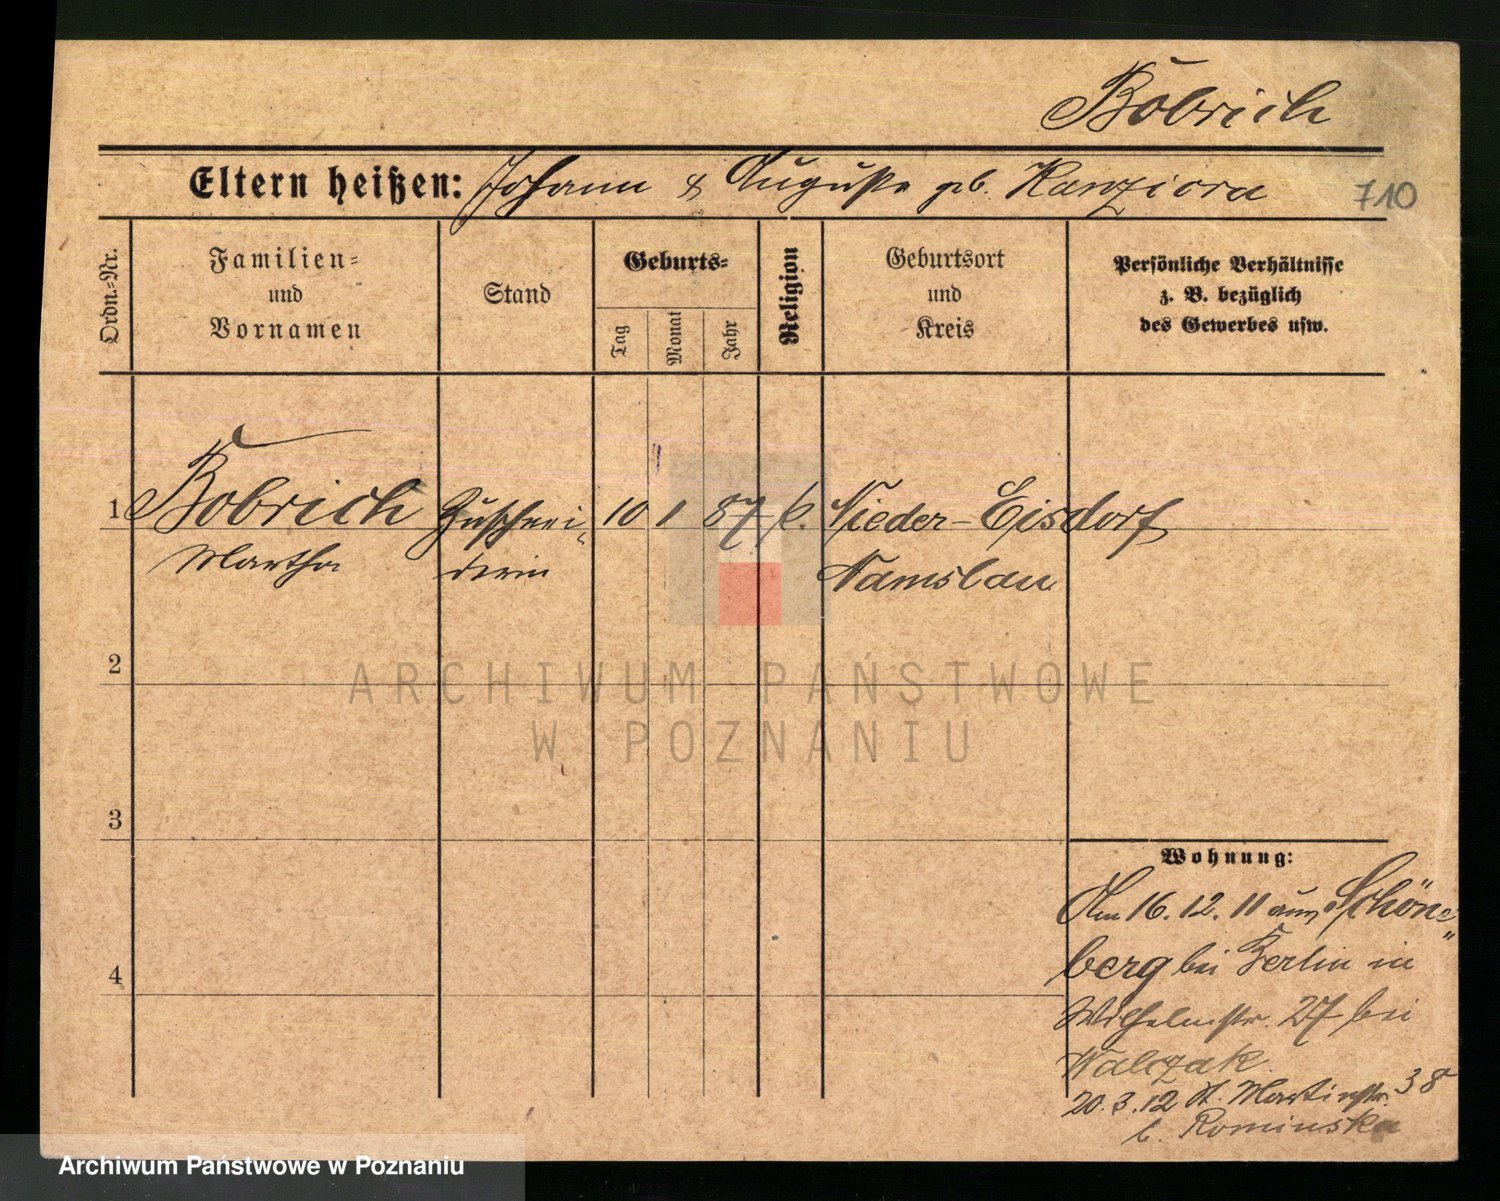 Bobrich
Eltern heißen: Johann & Auguste geb. Kanziora
710
Ordn.-Nr.
Familien-
und
Vornamen
Stand
Geburts-
Tag
Monat
Jahr
Religion
Geburtsort
und
Kreis
Persönliche Verhältnisse
z. B. bezüglich
des Gewerbes usw.
1 Bobrich Zuschnei- 10 1 87 k. Nieder-Eisdorf
Martha derin Namslau
2
ARCHIWUM PAŃSTWOWE
W POZNANIU
3
Wohnung:
Am 16.12.11 aus Schöne-
berg bei Berlin in
4
Wilhelmstr. 27 bei
Walczak
20.3.12 St. Martinstr. 38
b. Rominska
Archiwum Państwowe w Poznaniu